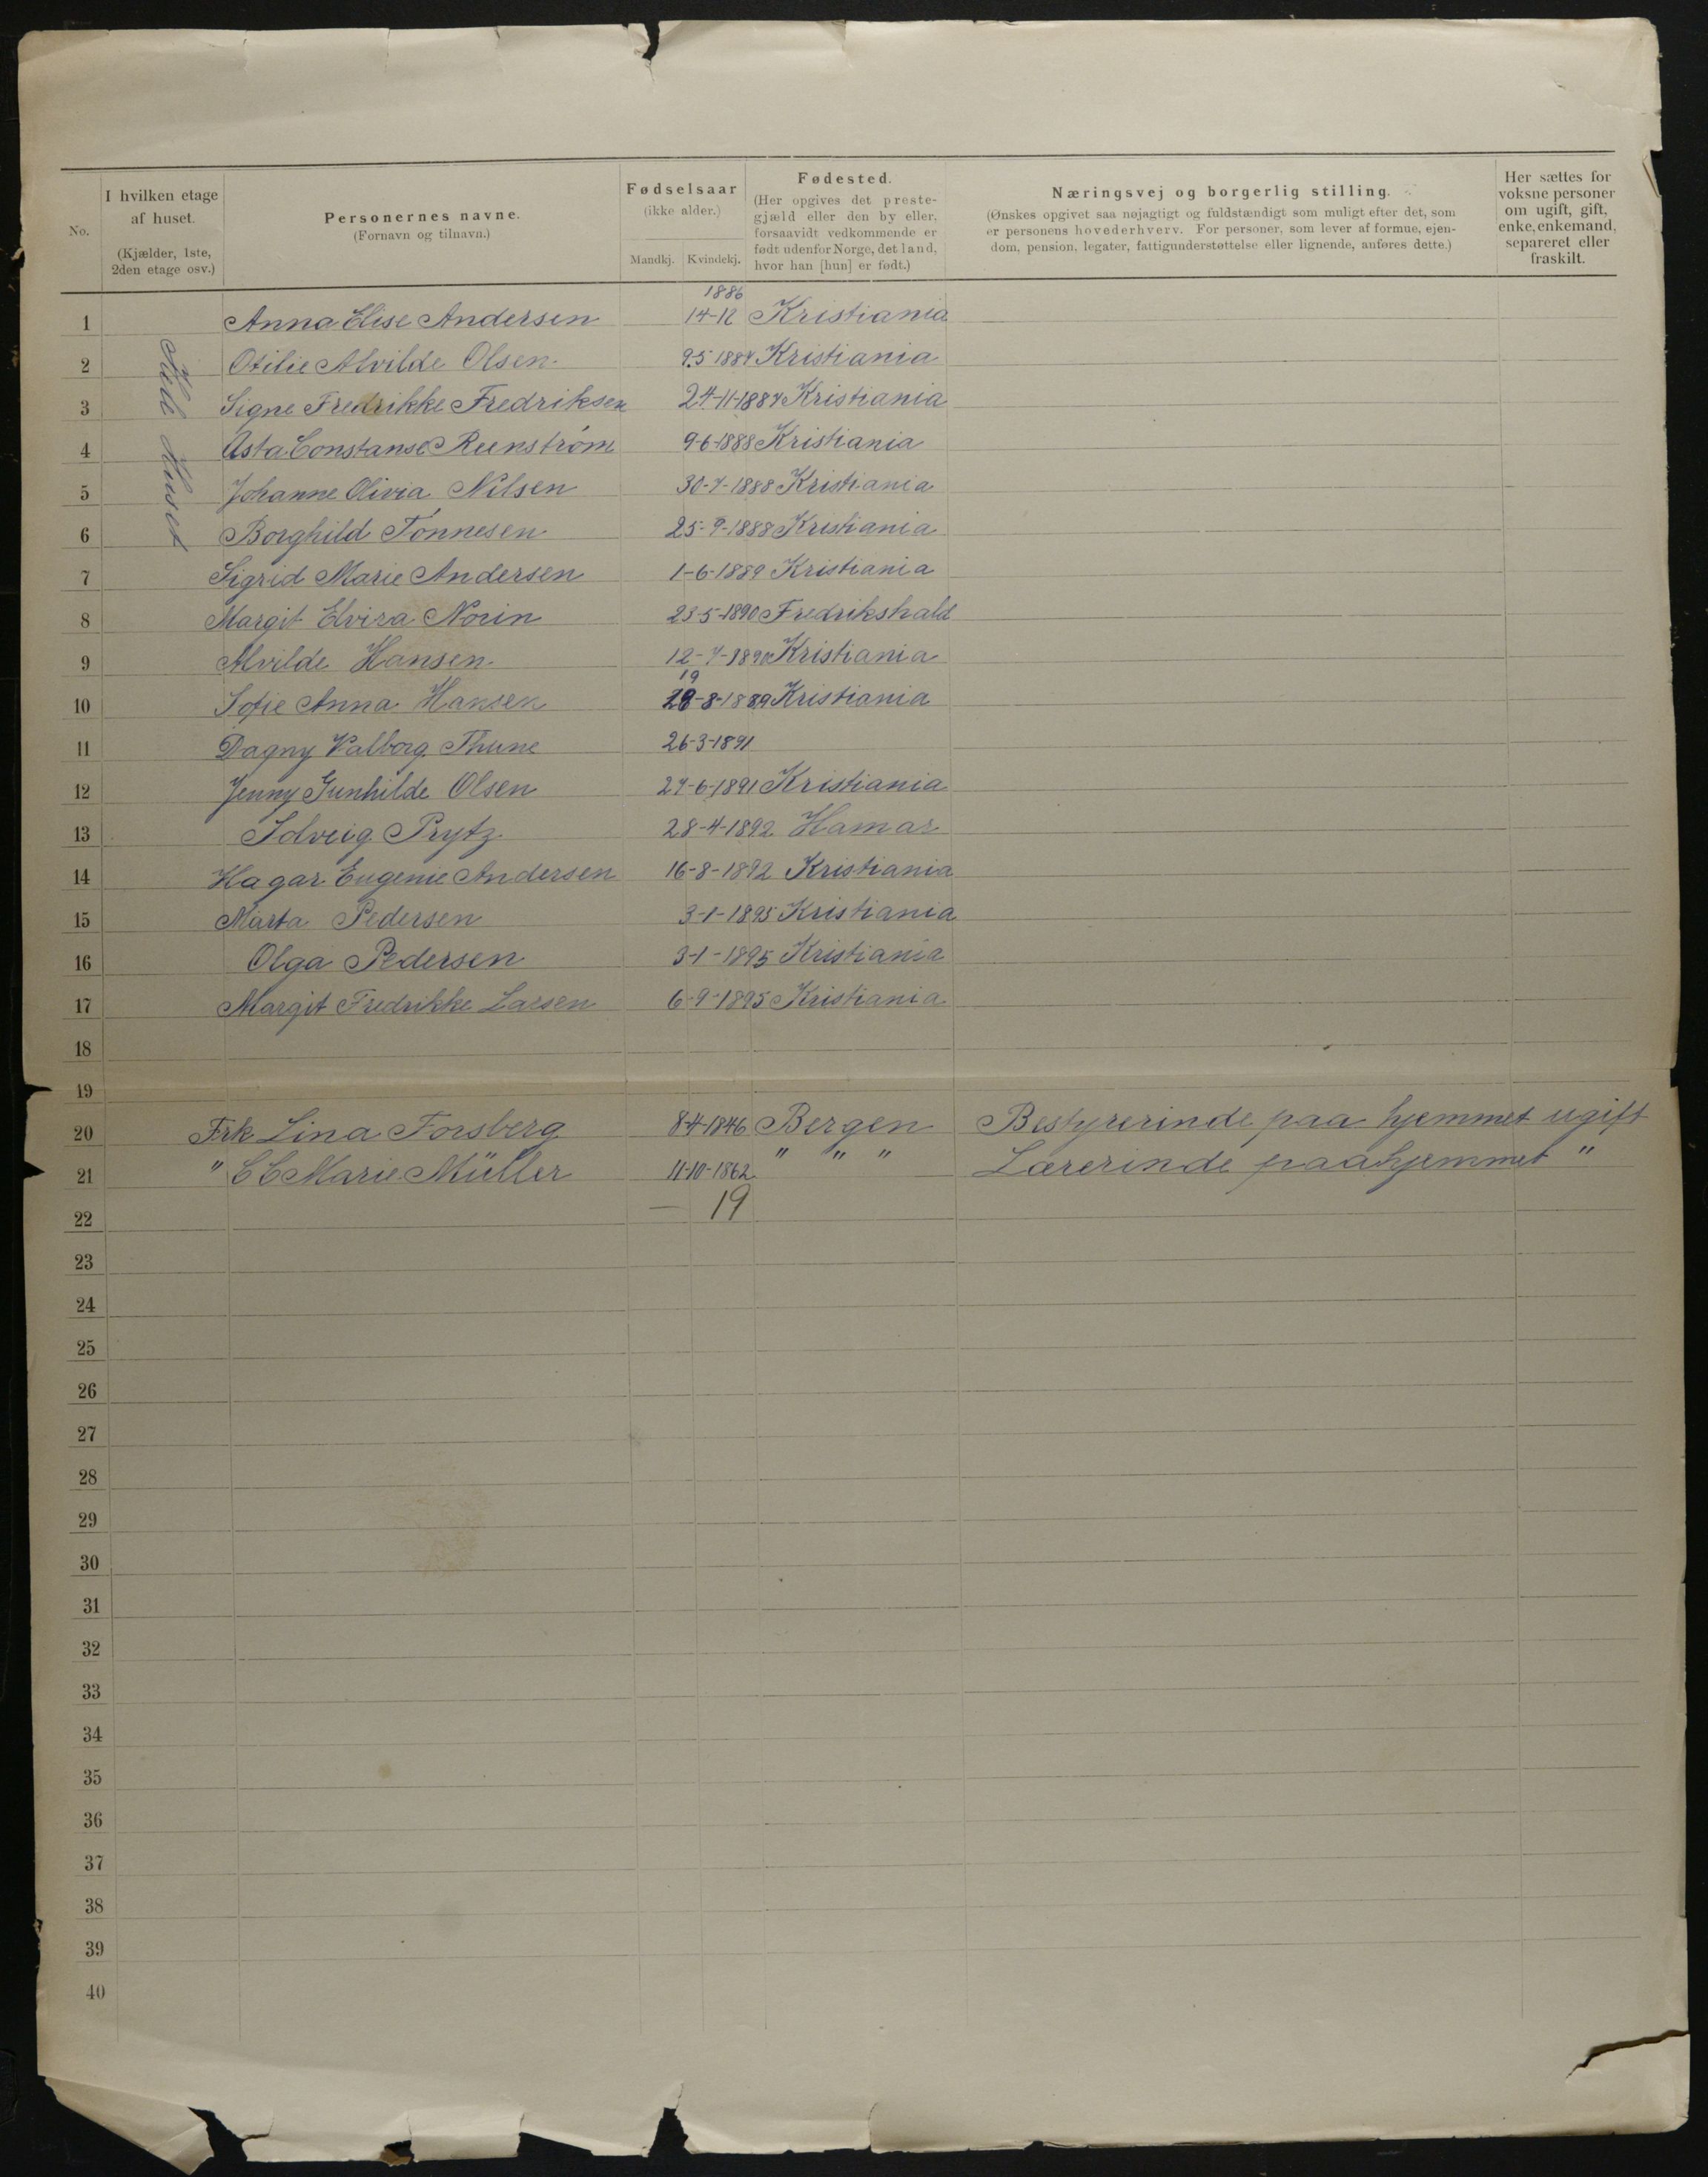 No.
I hvilken etage af huset.
(Kjælder, 1ste, 2den etage osv.)
Personernes navne.
(Fornavn og tilnavn.)
Fødselsaar
(ikke alder.)
Mandkj. Kvindekj.
Fødested.
(Her opgives det preste-
gjæld eller den by eller,
forsaavidt vedkommende er
født udenfor Norge, det land,
hvor han [hun] er født.)
Næringsvej og borgerlig stilling.
(Ønskes opgivet saa nøjagtigt og fuldstændigt som muligt efter det, som
er personens hovederhverv. For personer, som lever af formue, ejen-
dom, pension, legater, fattigunderstøttelse eller lignende, anføres dette.)
Her sættes for
voksne personer
om ugift, gift,
enke, enkemand,
separeret eller
fraskilt.
Hele Huset
1886
1 Anna Elise Andersen 14-12 Kristiania
2 Otilie Alvilde Olsen 9-5 1887 Kristiania
3 Signe Fredrikke Fredriksen 24-11-1887 Kristiania
4 Asta Constanse Reenstrøm 9-6-1888 Kristiania
5 Johanne Olivia Nilsen 30-7-1888 Kristiania
6 Borghild Tønnesen 25-9-1888 Kristiania
7 Sigrid Marie Andersen 1-6-1889 Kristiania
8 Margit Elvira Norin 23-5-1890 Fredrikshald
9 Alvilde Hansen 12-7-1890 Kristiania
19
10 Sofie Anna Hansen -8-1889 Kristiania
11 Dagny Valborg Thune 26-3-1891
12 Jenny Gunhilde Olsen 27-6-1891 Kristiania
13 Solveig Prytz 28-4-1892 Hamar
14 Hagar Eugenie Andersen 16-8-1892 Kristiania
15 Marta Pedersen 3-1-1895 Kristiania
16 Olga Pedersen 3-1-1895 Kristiania
17 Margit Fredrikke Larsen 6-9-1895 Kristiania
18
19
20 Frk Lina Forsberg 8-4-1846 Bergen Bestyrerinde paa hjemmet ugift
21 " C C Marie Müller 11-10-1862 " " " Lærerinde paa hjemmet "
22 — 19
23
24
25
26
27
28
29
30
31
32
33
34
35
36
37
38
39
40